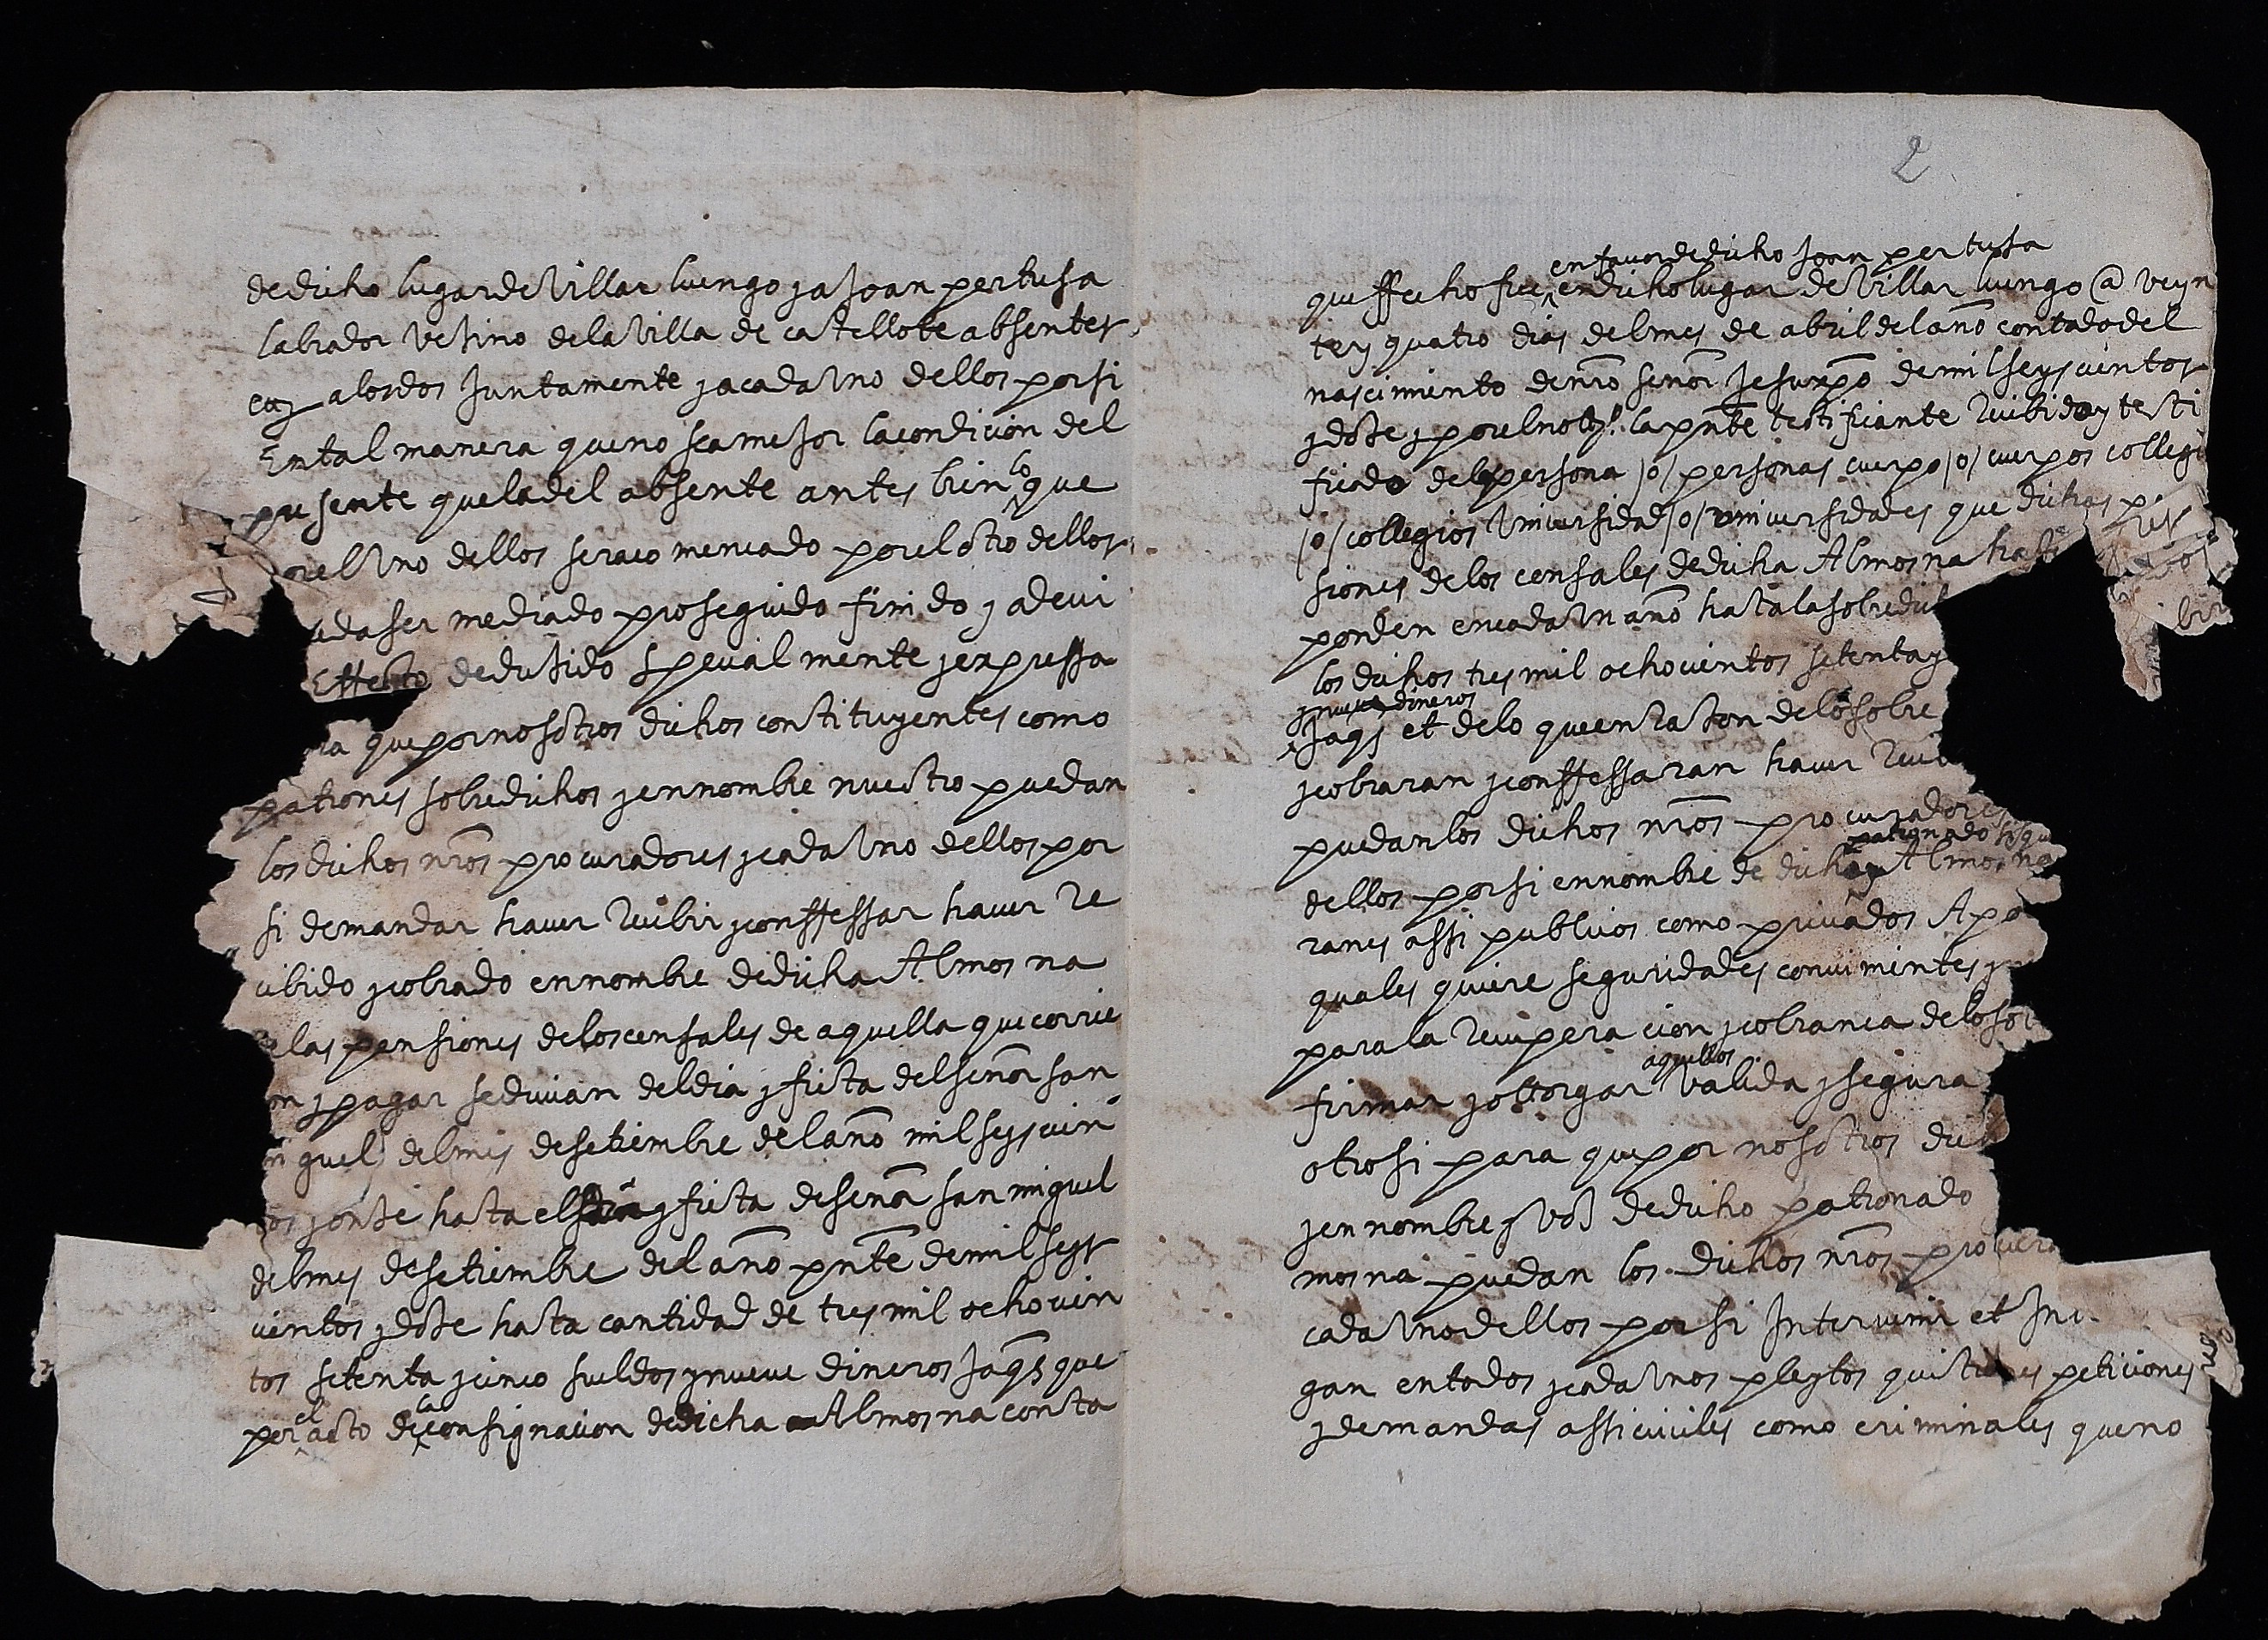 de dicho lugar de Villar luengo y a Joan pertusa
labrador vezino de la Villa de castellote absentes
a los dos Juntamente y a cada Uno dellos por si
En tal manera que no sea mejor la condicion del
presente que la del absente antes bien lo que
Uno dellos sera comencado por el otro dellos
ser mediado proseguido finido y a devi
Effecto deduzido specialmente y expressa
que por nosotros dichos constituyentes como
patrones sobredichos y en nombre nuestro puedan
los dichos nros procuradores y cada Uno dellos por
si demandar haver recibir y conffessar haver re
cibido y cobrado en nombre de dicha Almosna
las pensiones de los censales de aquella que corrie
y pagar se devian del dia y fiesta del señor san
guel del mes de setiembre del año mil seyscien
y onze hasta el dia y fiesta de señor san miguel
del mes de setiembre del año pnte de mil seys
cientos y doze hasta cantidad de tres mil ochocien
tos setenta y cinco sueldos y nueve dineros Jaqs que
por el acto de la consignacion de dicha Almosna consta
2
en favor de dicho Joan pertusa
que ffecho fue en dicho lugar de Villar luengo @ veyn
te y quatro dias del mes de abril del año contado del
nascimiento de nro señor Jesuxpo de mil seyscientos
y doze y por el noto la pnte testificante recibido y testi
ficado de la persona /o/ personas cuerpo /o/ cuerpos collegi
/o/ collegios Universidad /o/ universidades que dichas pe
siones de los censales de dicha Almosna hazen y res
ponden en cada Un año hasta la sobredic
los dichos tres mil ochocientos setenta y
y nueve dineros
Jaqs et de lo que en razon de lo sobre
y cobraran y conffessaran haver recib
puedan los dichos nros procuradores
patronado
dellos por si en nombre de dicho y Almosna
ranes assi publicos como privados Apo
quales quiere seguridades convinientes
para la recuperacion y cobranca de lo so
aquellos
firmar y ottorgar Valida y segura
otro si para que por nosotros dic
y en nombre y voz de dicho patronado
mosna puedan los dichos nros procura
cada Uno dellos por si Intervenir et Inv
gan en todos y cada Unos pleytos quistiones peticiones
y demandas assi civiles como criminales que no